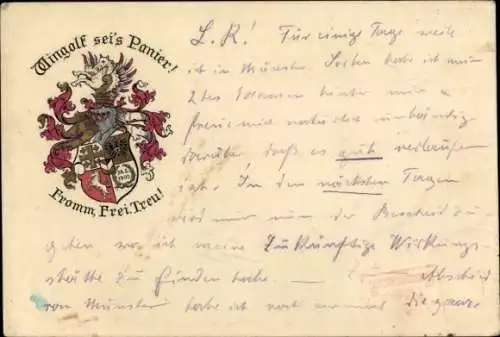 Wingolf sei's Panier!
Fromm, Frei, Treu!
L. K! Für einige Tage weile
ich in Münster. Soeben habe ich mein
2tes Examen hinter mir u.
freue mich natürlich unbändig
darüber, daß es gut verlaufen
ist. In den nächsten Tagen
wird mir nun der Bescheid zu-
gehen wo ich meine zukünftige Wirkungs-
stätte zu finden habe. — Abschied
von Münster habe ich noch einmal die ganze